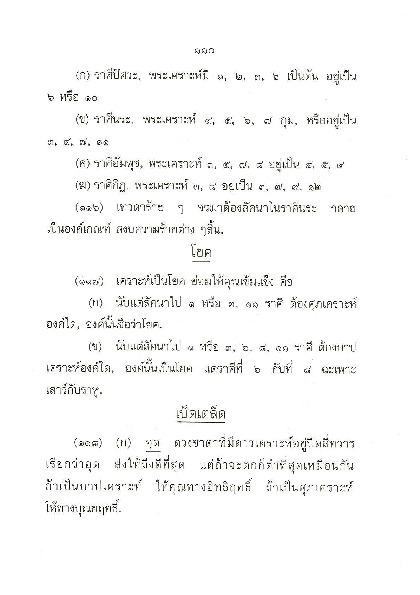 ๑๑๐
(ก) ราศีปัศวะ, พระเคราะห์มี ๑, ๒, ๓, ๖ เป็นต้น อยู่เป็น
๖ หรือ ๑๐
(ข) ราศีนระ, พระเคราะห์ ๔, ๕, ๖, ๗ กุม, หรืออยู่เป็น
๓, ๔, ๗, ๑๑
(ค) ราศีอัมพุช, พระเคราะห์ ๓, ๕, ๗, ๘ อยู่เป็น ๔, ๕, ๙
(ฆ) ราศีกีฏ, พระเคราะห์ ๓, ๘ อยู่เป็น ๓, ๗, ๙, ๑๒
(๑๑๖) ดาวร้าย ๆ ต้องลัคนาในราศีนระ กลาย
เป็นองค์เกณฑ์ สงบความร้ายต่าง ๆสิ้น.
โยค
(๑๑๗) เคราะห์เป็นโยค ย่อมให้คุณเข้มแข็ง คือ
(ก) นับแต่ลัคนาไป ๑ หรือ ๓, ๑๑ ราศี ต้องศุภเคราะห์
องค์ใด, องค์นั้นชื่อว่าโยค.
(ข) นับแต่ลัคนาไป ๑ หรือ ๓, ๖, ๘, ๑๑ ราศี ต้องบาป
เคราะห์องค์ใด, องค์นั้นเป็นโยค แต่ราศีที่ ๖ กับที่ ๘ ฉะเพาะ
เสาร์กับราหู.
เบ็ดเตล็ด
(๑๑๘) (ก) อุด ดวงชาตาที่มีดาวเคราะห์อยู่ปิดสี่ทวาร
เรียกว่าอุด ส่งให้ถึงดีที่สุด แต่ถ้าจะตกก็ต่ำที่สุดเหมือนกัน
ถ้าเป็นบาปเคราะห์ ให้คุณทางอิทธิฤทธิ์ ถ้าเป็นศุภเคราะห์
ให้ทางบุญฤทธิ์.